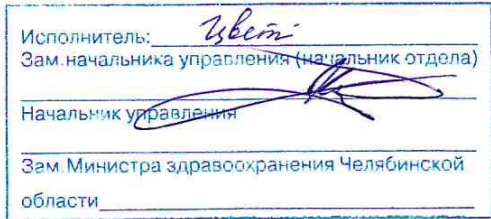 Исполнитель:
Зам.начальника управления (начальник отдела)
Начальник управления
Зам.Министра здравоохранения Челябинской
области